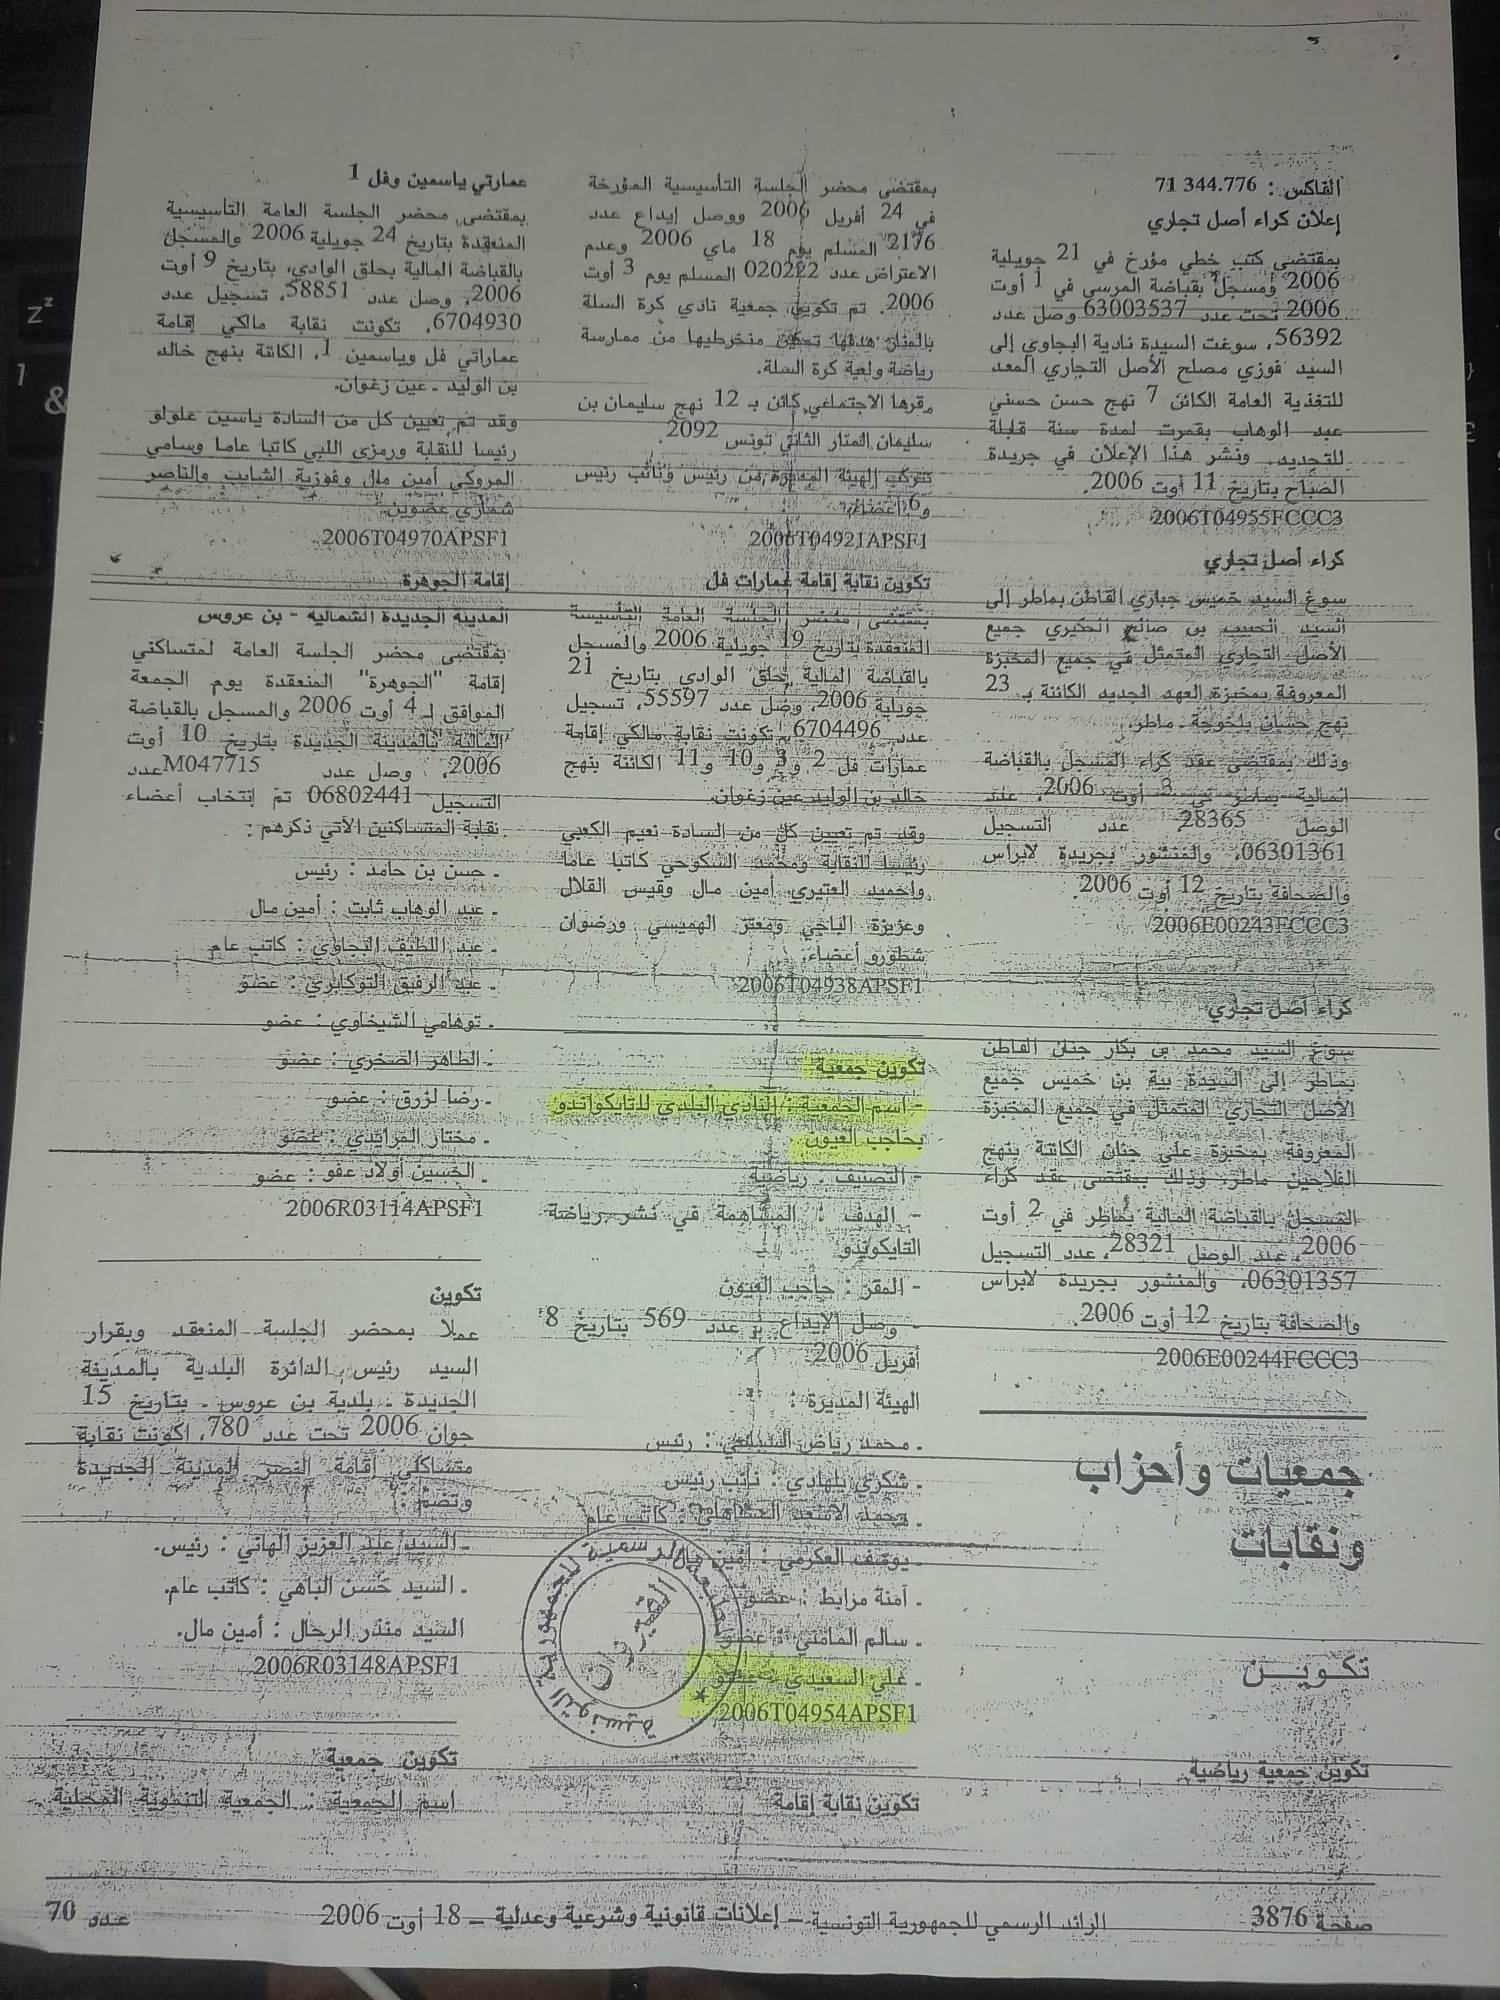 الفاكس : 71 344.776
إعلان كراء أصل تجاري
بمقتضى كتب خطي مؤرخ في 21 جويلية
2006 ومسجل بقباضة المرسى في 1 أوت
2006 تحت عدد 63003537 وصل عدد
56392، سوغت السيدة نادية البجاوي إلى
السيد فوزي مصلح الأصل التجاري المعد
للتغذية العامة الكائن 7 نهج حسن حسني
عبد الوهاب بقمرت لمدة سنة قابلة
للتجديد. ونشر هذا الإعلان في جريدة
الصباح بتاريخ 11 أوت 2006.
2006T04955FCCC3
كراء أصل تجاري
سوغ السيد خميس جباري القاطن بماطر إلى
السيد الحبيب بن صالح الحكيري جميع
الأصل التجاري المتمثل في جميع المخبزة
المعروفة بمخبزة العهد الجديد الكائنة بـ 23
نهج حسان بلخوجة ـ ماطر.
وذلك بمقتضى عقد كراء المسجل بالقباضة
المالية بماطر في 3 أوت 2006، عدد
الوصل 28365 عدد التسجيل
06301361، والمنشور بجريدة لابراس
والصحافة بتاريخ 12 أوت 2006.
2006E00243FCCC3
كراء أصل تجاري
سوغ السيد محمد بن بكار جنان القاطن
بماطر إلى السيدة بية بن خميس جميع
الأصل التجاري المتمثل في جميع المخبزة
المعروفة بمخبزة علي جنان الكائنة بنهج
الفلاحين ماطر، وذلك بمقتضى عقد كراء
المسجل بالقباضة المالية بماطر في 2 أوت
2006، عدد الوصل 28321، عدد التسجيل
06301357، والمنشور بجريدة لابراس
والصحافة بتاريخ 12 أوت 2006.
2006E00244FCCC3
جمعيات وأحزاب
ونقابات
تكويـــن
تكوين جمعية رياضية
بمقتضى محضر الجلسة التأسيسية المؤرخة
في 24 أفريل 2006 ووصل إيداع عدد
2176 المسلم يوم 18 ماي 2006 وعدم
الاعتراض عدد 020222 المسلم يوم 3 أوت
2006. تم تكوين جمعية نادي كرة السلة
بالمنار هدفها تمكين منخرطيها من ممارسة
رياضة ولعبة كرة السلة.
مقرها الاجتماعي كائن بـ 12 نهج سليمان بن
سليمان المنار الثاني تونس 2092.
تتركب الهيئة المديرة من رئيس ونائب رئيس
و6 أعضاء.
2006T04921APSF1
تكوين نقابة إقامة عمارات فل
بمقتضى محضر الجلسة العامة التأسيسية
المنعقدة بتاريخ 19 جويلية 2006 والمسجل
بالقباضة المالية بحلق الوادي بتاريخ 21
جويلية 2006، وصل عدد 55597، تسجيل
عدد 6704496، تكونت نقابة مالكي إقامة
عمارات فل 2 و3 و10 و11 الكائنة بنهج
خالد بن الوليد عين زغوان.
وقد تم تعيين كل من السادة نعيم الكعبي
رئيسا للنقابة ومحمد السكوحي كاتبا عاما
واحميد العتيري أمين مال وقيس القلال
وعزيزة الباجي ومعتز الهميسي ورضوان
شطورو أعضاء.
2006T04938APSF1
تكوين جمعية
- اسم الجمعية : النادي البلدي للتايكواندو
بحاجب العيون
- التصنيف : رياضية
- الهدف : المساهمة في نشر رياضة
التايكوندو
- المقر : حاجب العيون
- وصل الإيداع : عدد 569 بتاريخ 8
أفريل 2006
الهيئة المديرة :
ـ محمد رياض السبيعي : رئيس
ـ شكري بلهادي : نائب رئيس
ـ محمد الأسعد : كاتب عام
ـ يوسف العكرمي : أمين مال
ـ آمنة مرابط : عضو
ـ سالم المامني : عضو
ـ علي السعيدي : عضو
2006T04954APSF1
المطبعة الرسمية للجمهورية التونسية
القيروان
تكوين نقابة إقامة
عمارتي ياسمين وفل 1
بمقتضى محضر الجلسة العامة التأسيسية
المنعقدة بتاريخ 24 جويلية 2006 والمسجل
بالقباضة المالية بحلق الوادي، بتاريخ 9 أوت
2006، وصل عدد 58851، تسجيل عدد
6704930، تكونت نقابة مالكي إقامة
عماراتي فل وياسمين 1، الكائنة بنهج خالد
بن الوليد ـ عين زغوان.
وقد تم تعيين كل من السادة ياسين علولو
رئيسا للنقابة ورمزي اللبي كاتبا عاما وسامي
المروكي أمين مال وفوزية الشايب والناصر
شماري عضوين.
2006T04970APSF1
إقامة الجوهرة
المدينة الجديدة الشمالية - بن عروس
بمقتضى محضر الجلسة العامة لمتساكني
إقامة "الجوهرة" المنعقدة يوم الجمعة
الموافق لـ 4 أوت 2006 والمسجل بالقباضة
المالية بالمدينة الجديدة بتاريخ 10 أوت
2006، وصل عدد M047715 عدد
التسجيل 06802441 تم إنتخاب أعضاء
نقابة المتساكنين الآتي ذكرهم :
ـ حسن بن حامد : رئيس
ـ عبد الوهاب ثابت : أمين مال
ـ عبد اللطيف النجاوي : كاتب عام
ـ عبد الرفيق التوكابري : عضو
ـ توهامي الشيخاوي : عضو
ـ الطاهر الصخري : عضو
ـ رضا لزرق : عضو
ـ مختار المرايدي : عضو
ـ الحسين أولاد عفو : عضو
2006R03114APSF1
تكوين
عملا بمحضر الجلسة المنعقد وبقرار
السيد رئيس الدائرة البلدية بالمدينة
الجديدة ـ بلدية بن عروس ـ بتاريخ 15
جوان 2006 تحت عدد 780، اكونت نقابة
متساكلي إقامة النصر المدينة الجديدة
وتضم :
ـ السيد عبد العزيز الهاني : رئيس.
ـ السيد حسن الباهي : كاتب عام.
السيد منذر الرحال : أمين مال.
2006R03148APSF1
تكوين جمعية
اسم الجمعية : الجمعية التنموية المحلية
صفحة 3876
الرائد الرسمي للجمهورية التونسية – إعلانات قانونية وشرعية وعدلية – 18 أوت 2006
عدد 70